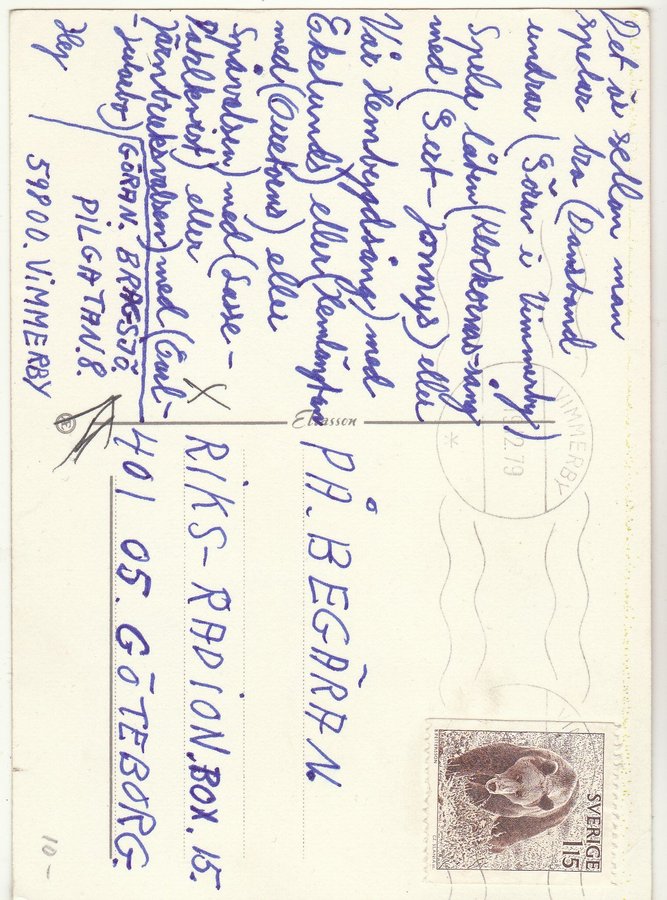 Det är sellan man
spelar bra (Dansband
undrar (Göran i Vimmerby)
Spela låten (Klockornas-sång
med (Gert-Jonnys) eller
Vår Hembygdsång) med
Ekelunds) eller (Hemlängtan
med (Curetorns) eller
Spårvalsen) med (Lasse-
Dahlkvist) eller
Järnbruksvalsen) med (Carl-
Jularbo)
Hej
GÖRAN. BRAESJÖ
PILGATAN. 8.
59800. VIMMERBY
X
Eliasson
PÅ. BEGÄRAN.
RIKS-RADION. BOX. 15.
401 05. GÖTEBORG.
VIMMERBY
12.79
SVERIGE
1.15
10-